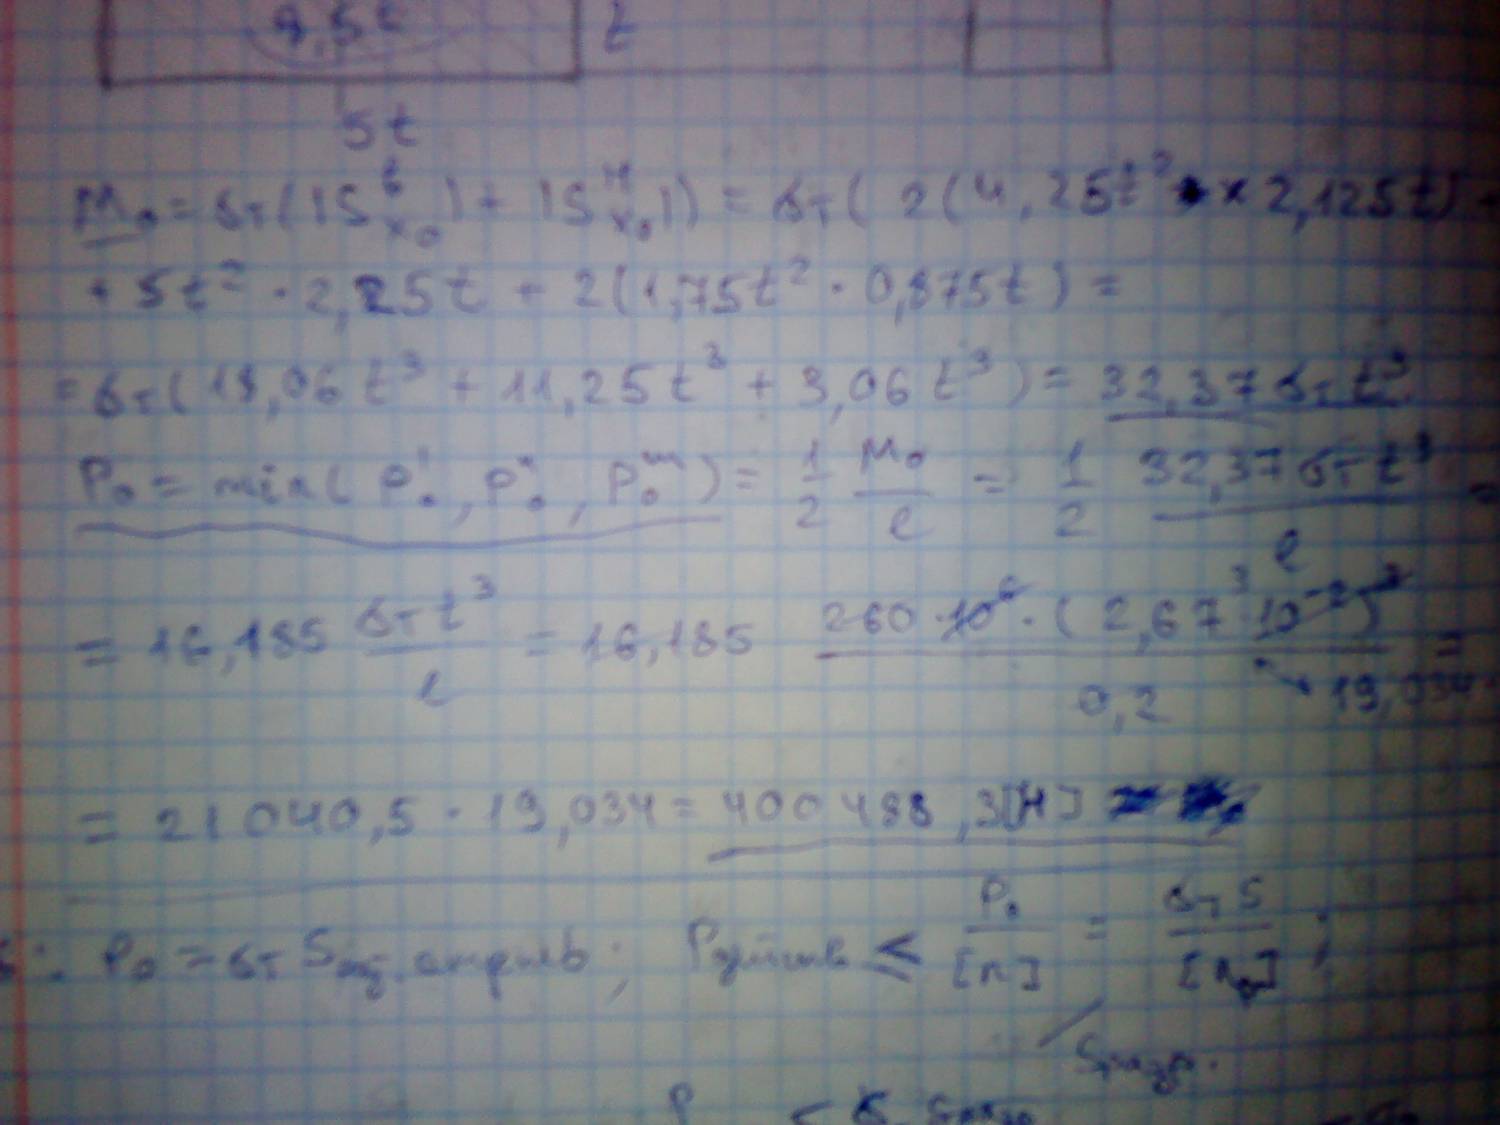 4,5t t
5t
M₀ = σт(|S^в_x₀|) + |S^н_x₀|) = σт( 2(4,25t² × 2,125t) +
+ 5t² · 2,25t + 2(1,75t² · 0,875t) =
= σт(18,06t³ + 11,25t³ + 3,06t³) = 32,37σт t³
P₀ = min( P₀ᴵ, P₀ᴵᴵ, P₀ᴵᴵᴵ) = 1/2 M₀/ℓ = 1/2 32,37σт t³/ℓ =
= 16,185 σт t³/ℓ = 16,185 260·10⁶·(2,67³·10⁻²)³/0,2 =
→ 19,034
= 21040,5 · 19,034 = 400488,3[Н]
P₀ = σт S отрыв; ≤ P₀/[n] = σт S/[n] ;
Sразр.